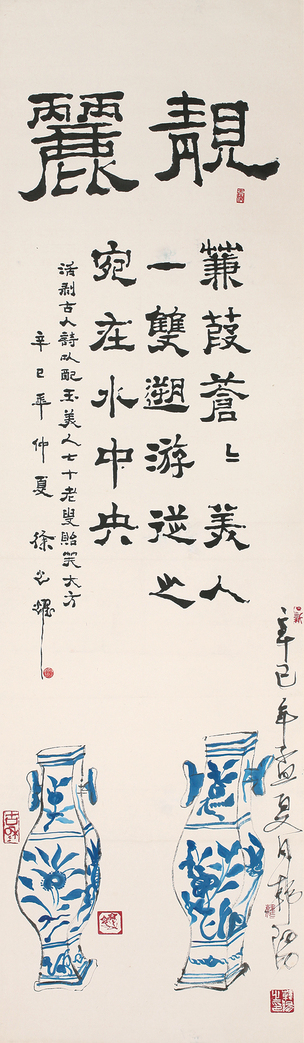 靚麗
蒹葭蒼〻美人
一雙遡游從之
宛在水中央
活剥古人詩以配玉美人七十老叟貽笑大方
辛巳年仲夏
辛巳年孟夏月韓陽